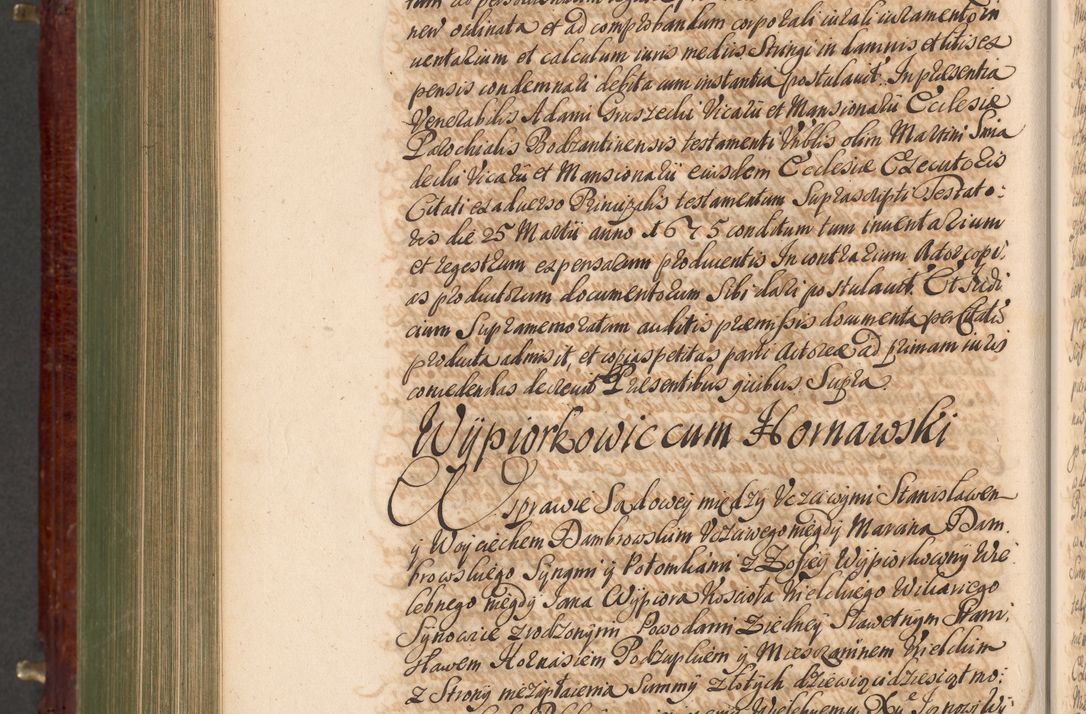 ner ordinata et ad comprobandum corporali iurali iuramento in
uentarium et calculum iuris mediis Stringi in damnis et litis ex
pensis condemnari debita cum instantia postulauit. In præsentia
Venerabilis Adami Gruszecki Vicarii et Mansionarii Ecclesiæ
Parochialis Bodzantinensis testamenti Vnblis olim Martini Smia
decki Vicarii et Mansionarii eiusdem Ecclesiæ Executoris
Citati ex aduerso Principalis testamentum Suprascripti Testato:
ris die 25 Martii anno 1675 conditum tum inuentarium
et regestrum expensarum producentis In contrarium Actor copi:
as productorum documentorum Sibi dari postulauit. Et Iudi
cium Supramemoratum auditis præmissis documenta per Citatũ
producta admisit, et copias petitas parti Actoreæ ad primam iuris
concedendas decreuit Præsentibus quibus Supra
Wÿpiorkowic cum Hornawski
W Sprawie Sądowey między Vczciwymi Stanisławem
y Woyciechem Dambrowskim Vczciwego niegdy Marcina Dam
browskiego Synami y Potomkami z Zofiey Wypiorkowny Wie
lebnego niegdy Jana Wypiora Koscioła Kieleckiego Wikariego
Synowice zrodzonymi Powodami Z iedney Sławetnym Stani:
sławem Hornasiem Podzupkiem y Miesczaninem Kieleckim
z Strony niezapłacenia Summy złotych dziewiącidziesiąt mo: